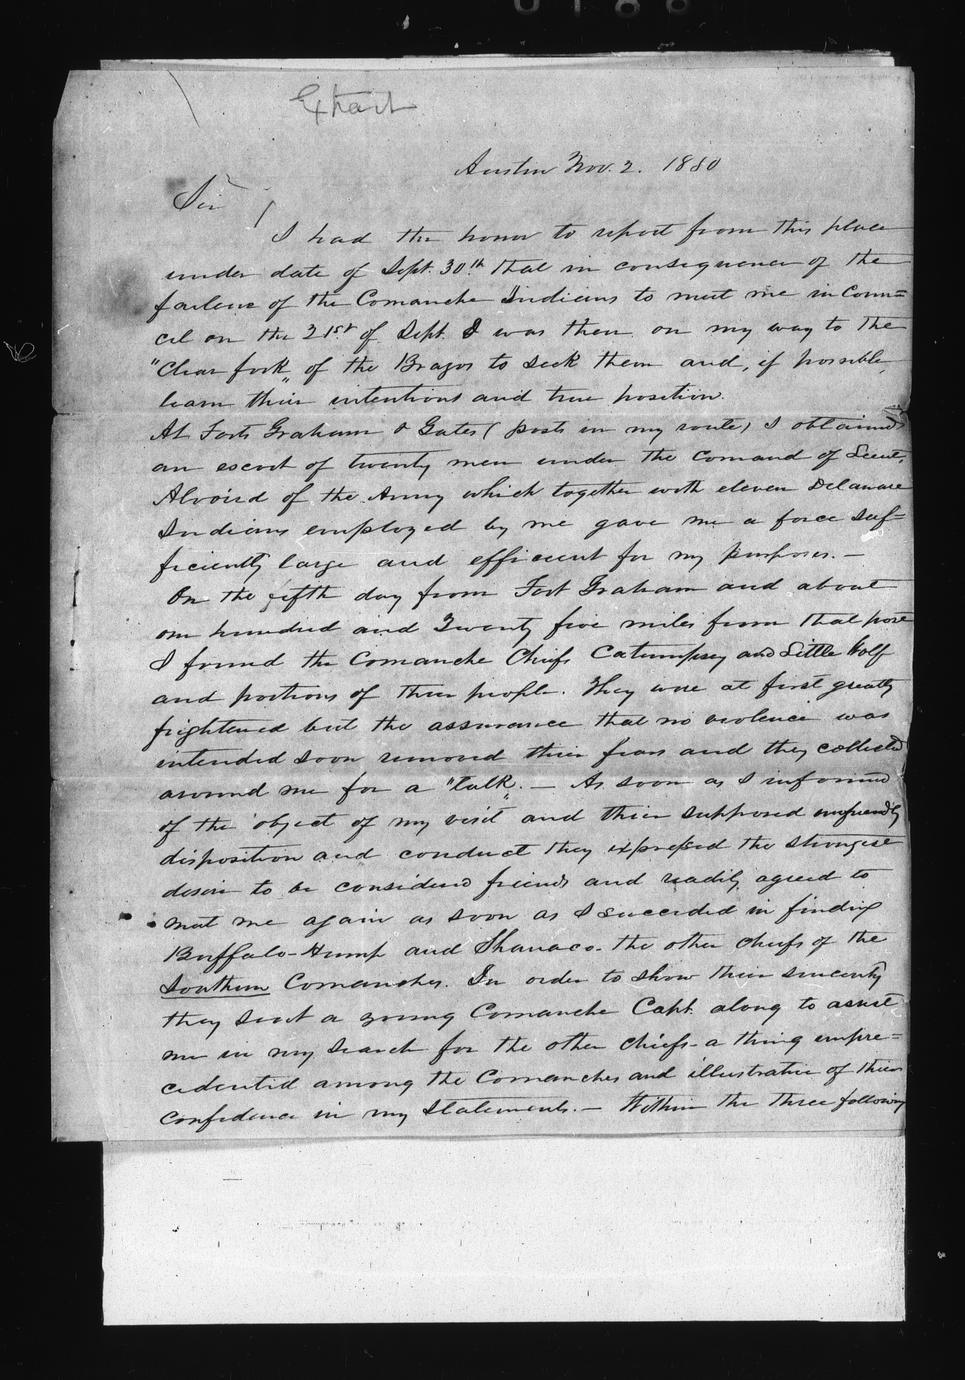 Extract
Austin Nov. 2. 1850
Sir
I had the honor to report from this place
under date of Sept. 30th that in consequence of the
failure of the Comanche Indians to meet me in Coun=
cil on the 21st of Sept. I was then on my way to the
"Clear fork" of the Brazos to seek them and, if possible,
learn their intentions and true position.
At Forts Graham & Gates (posts in my route) I obtained
an escort of twenty men under the comand of Lieut.
of the Army which together with eleven Delaware
Indians employed by me gave me a force suf-
ficiently large and efficient for my purposes. —
On the fifth day from Fort Graham and about
one hundred and Twenty five miles from that post
I found the Comanche Chiefs Catumpsey and Little Wolf
and portions of their people. They were at first greatly
frightened but the assurance that no violence was
intended soon removed their fears and they collected
around me for a "talk". — As soon as I informed
of the object of my visit and their supposed unfriendly
disposition and conduct they expressed the strongest
desire to be considered friends and readily agreed to
meet me again as soon as I succeeded in finding
Buffalo-Hump and Shanaco - the other chiefs of the
Southern Comanches. In order to show their sincerity
they sent a young Comanche Capt. along to assist
me in my search for the other chiefs - a thing unpre=
cedented among the Comanches and illustrative of their
confidence in my statements. — Within the three following